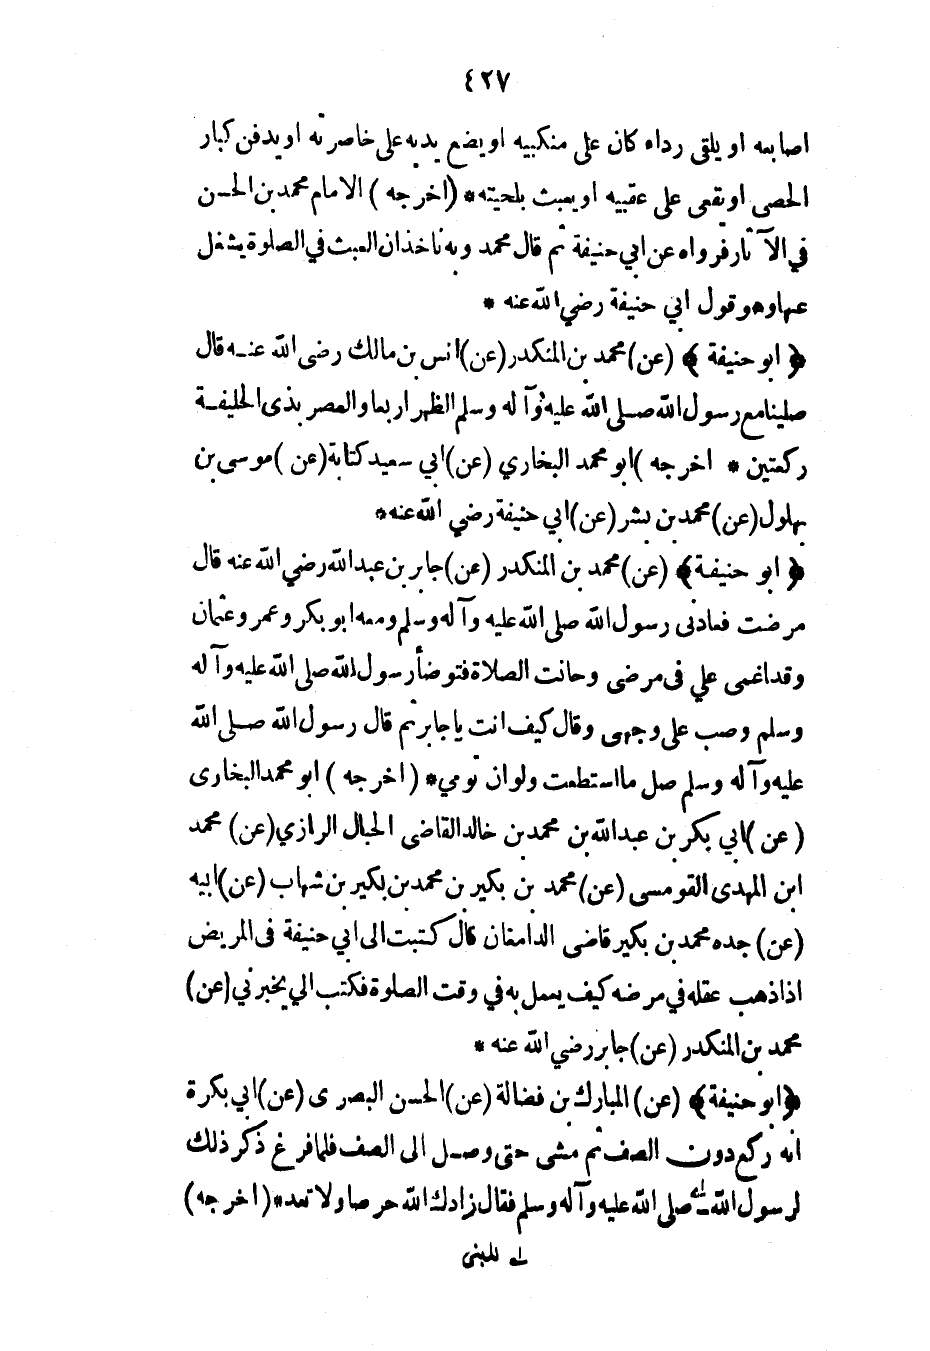 ٤٢٧
اصابعه او يلقى رداه كان على منكبيه او يضع يديه على خاصرته او يدفن كبار
الحصى او يقعى على عقبيه او يعبث بلحيته* (اخرجه) الامام محمد بن الحسن
في الآثار فرواه عن ابي حنيفة ثم قال محمد وبه ناخذ ان العبث في الصلوة يشغل
عنها وهو قول ابي حنيفة رضي الله عنه *
﴿ ابو حنيفة ﴾ (عن) محمد بن المنكدر (عن) انس بن مالك رضى الله عنه قال
صلينا مع رسول الله صلى الله عليه وآله وسلم الظهر اربعا والعصر بذى الحليفة
ركعتين * اخرجه) ابو محمد البخاري (عن) ابي سعيد كتابة (عن) موسى بن
بهلول (عن) محمد بن بشر (عن) ابي حنيفة رضي الله عنه*
﴿ ابو حنيفة ﴾ (عن) محمد بن المنكدر (عن) جابر بن عبدالله رضي الله عنه قال
مرضت فعادنى رسول الله صلى الله عليه وآله وسلم ومعه ابو بكر وعمر وعثمان
وقد اغمى علي في مرضى وحانت الصلاة فتوضأ رسول الله صلى الله عليه وآله
وسلم وصب على وجهى وقال كيف انت يا جابر ثم قال رسول الله صلى الله
عليه وآله وسلم صل ما استطعت ولو ان تومي* (اخرجه) ابو محمد البخارى
(عن) ابي بكر بن عبدالله بن محمد بن خالد القاضى الحبال الرازي (عن) محمد
ابن المهدى القومسى (عن) محمد بن بكير بن محمد بن بكير بن شهاب (عن) ابيه
(عن) جده محمد بن بكير قاضى الدامغان قال كتبت الى ابي حنيفة فى المريض
اذا ذهب عقله في مرضه كيف يعمل به في وقت الصلوة فكتب الي يخبرني (عن)
محمد بن المنكدر (عن) جابر رضي الله عنه *
﴿ ابو حنيفة ﴾ (عن) المبارك بن فضالة (عن) الحسن البصرى (عن) ابي بكرة
انه ركع دون الصف ثم مشى حتى وصل الى الصف فلما فرغ ذكر ذلك
لرسول الله صلى الله عليه وآله وسلم فقال زادك الله حرصا ولا تعد* (اخرجه)